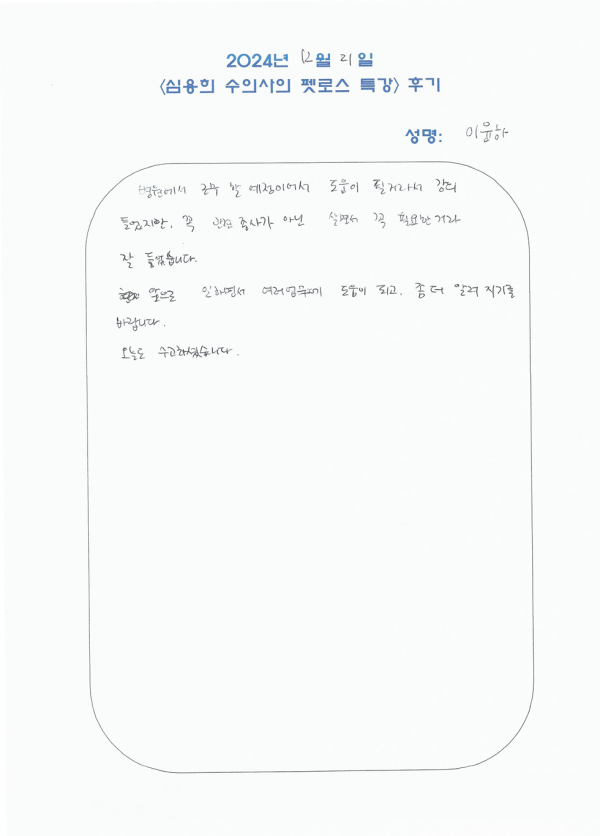 2024년 12월 21일
<심용희 수의사의 펫로스 특강> 후기
성명: 이윤하
병원에서 근무 할 예정이어서 도움이 될거라서 강의
들었지만, 꼭 관련 종사가 아닌 살면서 꼭 필요한 거라
잘 들었습니다.
앞으로 일하면서 여러업무에 도움이 되고, 좀 더 알려 지기를
바랍니다.
오늘도 수고하셨습니다.